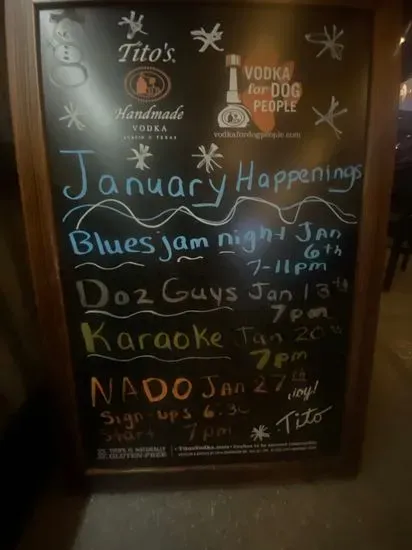 Tito's
Handmade
VODKA
AUSTIN TEXAS
VODKA
for DOG
PEOPLE
vodkafordogpeople.com
January Happenings
Blues jam night JAN
6th
7-11pm
Doz Guys Jan 13th
7pm
Karaoke Jan 20th
7pm
NADO JAN 27th
Sign-ups 6:30
Start 7pm
Tito
TITO'S IS NATURALLY
GLUTEN-FREE
TitosVodka.com